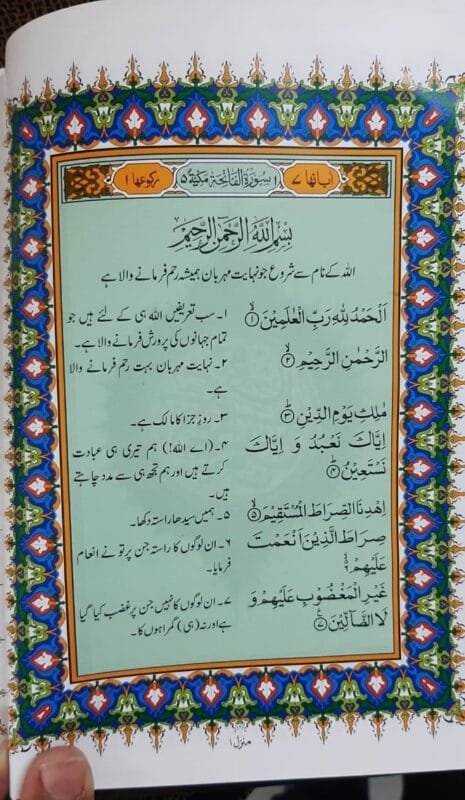 اٰیاتھا ۷
۱ سُوْرَةُ الْفَاتِحَةِ مَكِّيَّةٌ ۵
رکوعھا ۱
بِسْمِ اللّٰهِ الرَّحْمٰنِ الرَّحِيْمِ
اللہ کے نام سے شروع جو نہایت مہربان ہمیشہ رحم فرمانے والا ہے
اَلْحَمْدُ لِلّٰهِ رَبِّ الْعٰلَمِيْنَ ۙ﴿۱﴾
الرَّحْمٰنِ الرَّحِيْمِ ۙ﴿۲﴾
مٰلِكِ يَوْمِ الدِّيْنِ ؕ﴿۳﴾
اِيَّاكَ نَعْبُدُ وَ اِيَّاكَ
نَسْتَعِيْنُ ؕ﴿۴﴾
اِهْدِنَا الصِّرَاطَ الْمُسْتَقِيْمَ ۙ﴿۵﴾
صِرَاطَ الَّذِيْنَ اَنْعَمْتَ
عَلَيْهِمْ ۙ﴿۶﴾
غَيْرِ الْمَغْضُوْبِ عَلَيْهِمْ وَ
لَا الضَّآلِّيْنَ ﴿۷﴾
۱۔ سب تعریفیں اللہ ہی کے لئے ہیں جو
تمام جہانوں کی پرورش فرمانے والا ہے۔
۲۔ نہایت مہربان بہت رحم فرمانے والا
ہے۔
۳۔ روزِ جزا کا مالک ہے۔
۴۔ (اے اللہ!) ہم تیری ہی عبادت
کرتے ہیں اور ہم تجھ ہی سے مدد چاہتے
ہیں۔
۵۔ ہمیں سیدھا راستہ دکھا۔
۶۔ ان لوگوں کا راستہ جن پر تو نے انعام
فرمایا۔
۷۔ ان لوگوں کا نہیں جن پر غضب کیا گیا
ہے اور نہ (ہی) گمراہوں کا۔
منزل ۱